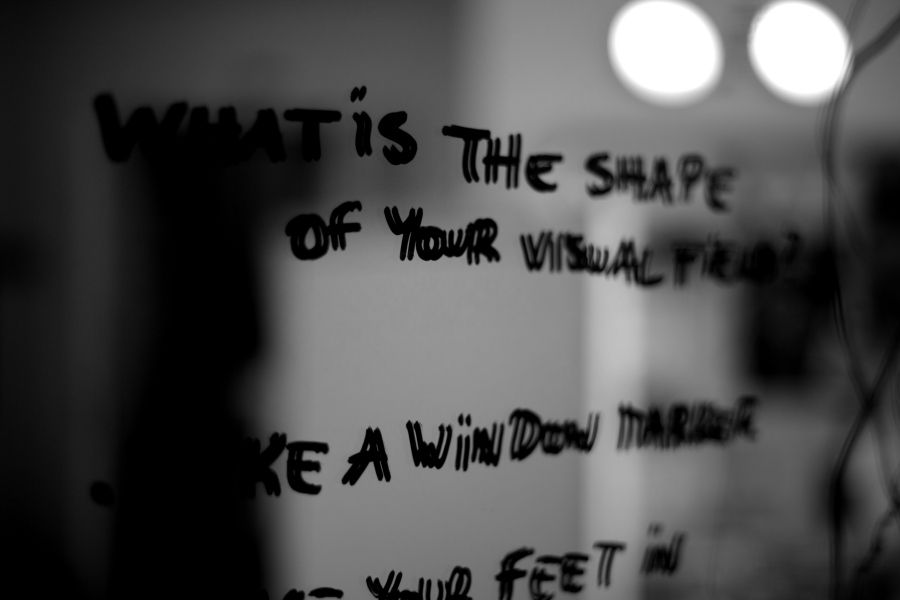 WHAT iS THE SHAPE
OF YOUR VISUAL FIELD?
KE A WiNDOW MARKER
YOUR FEET iN